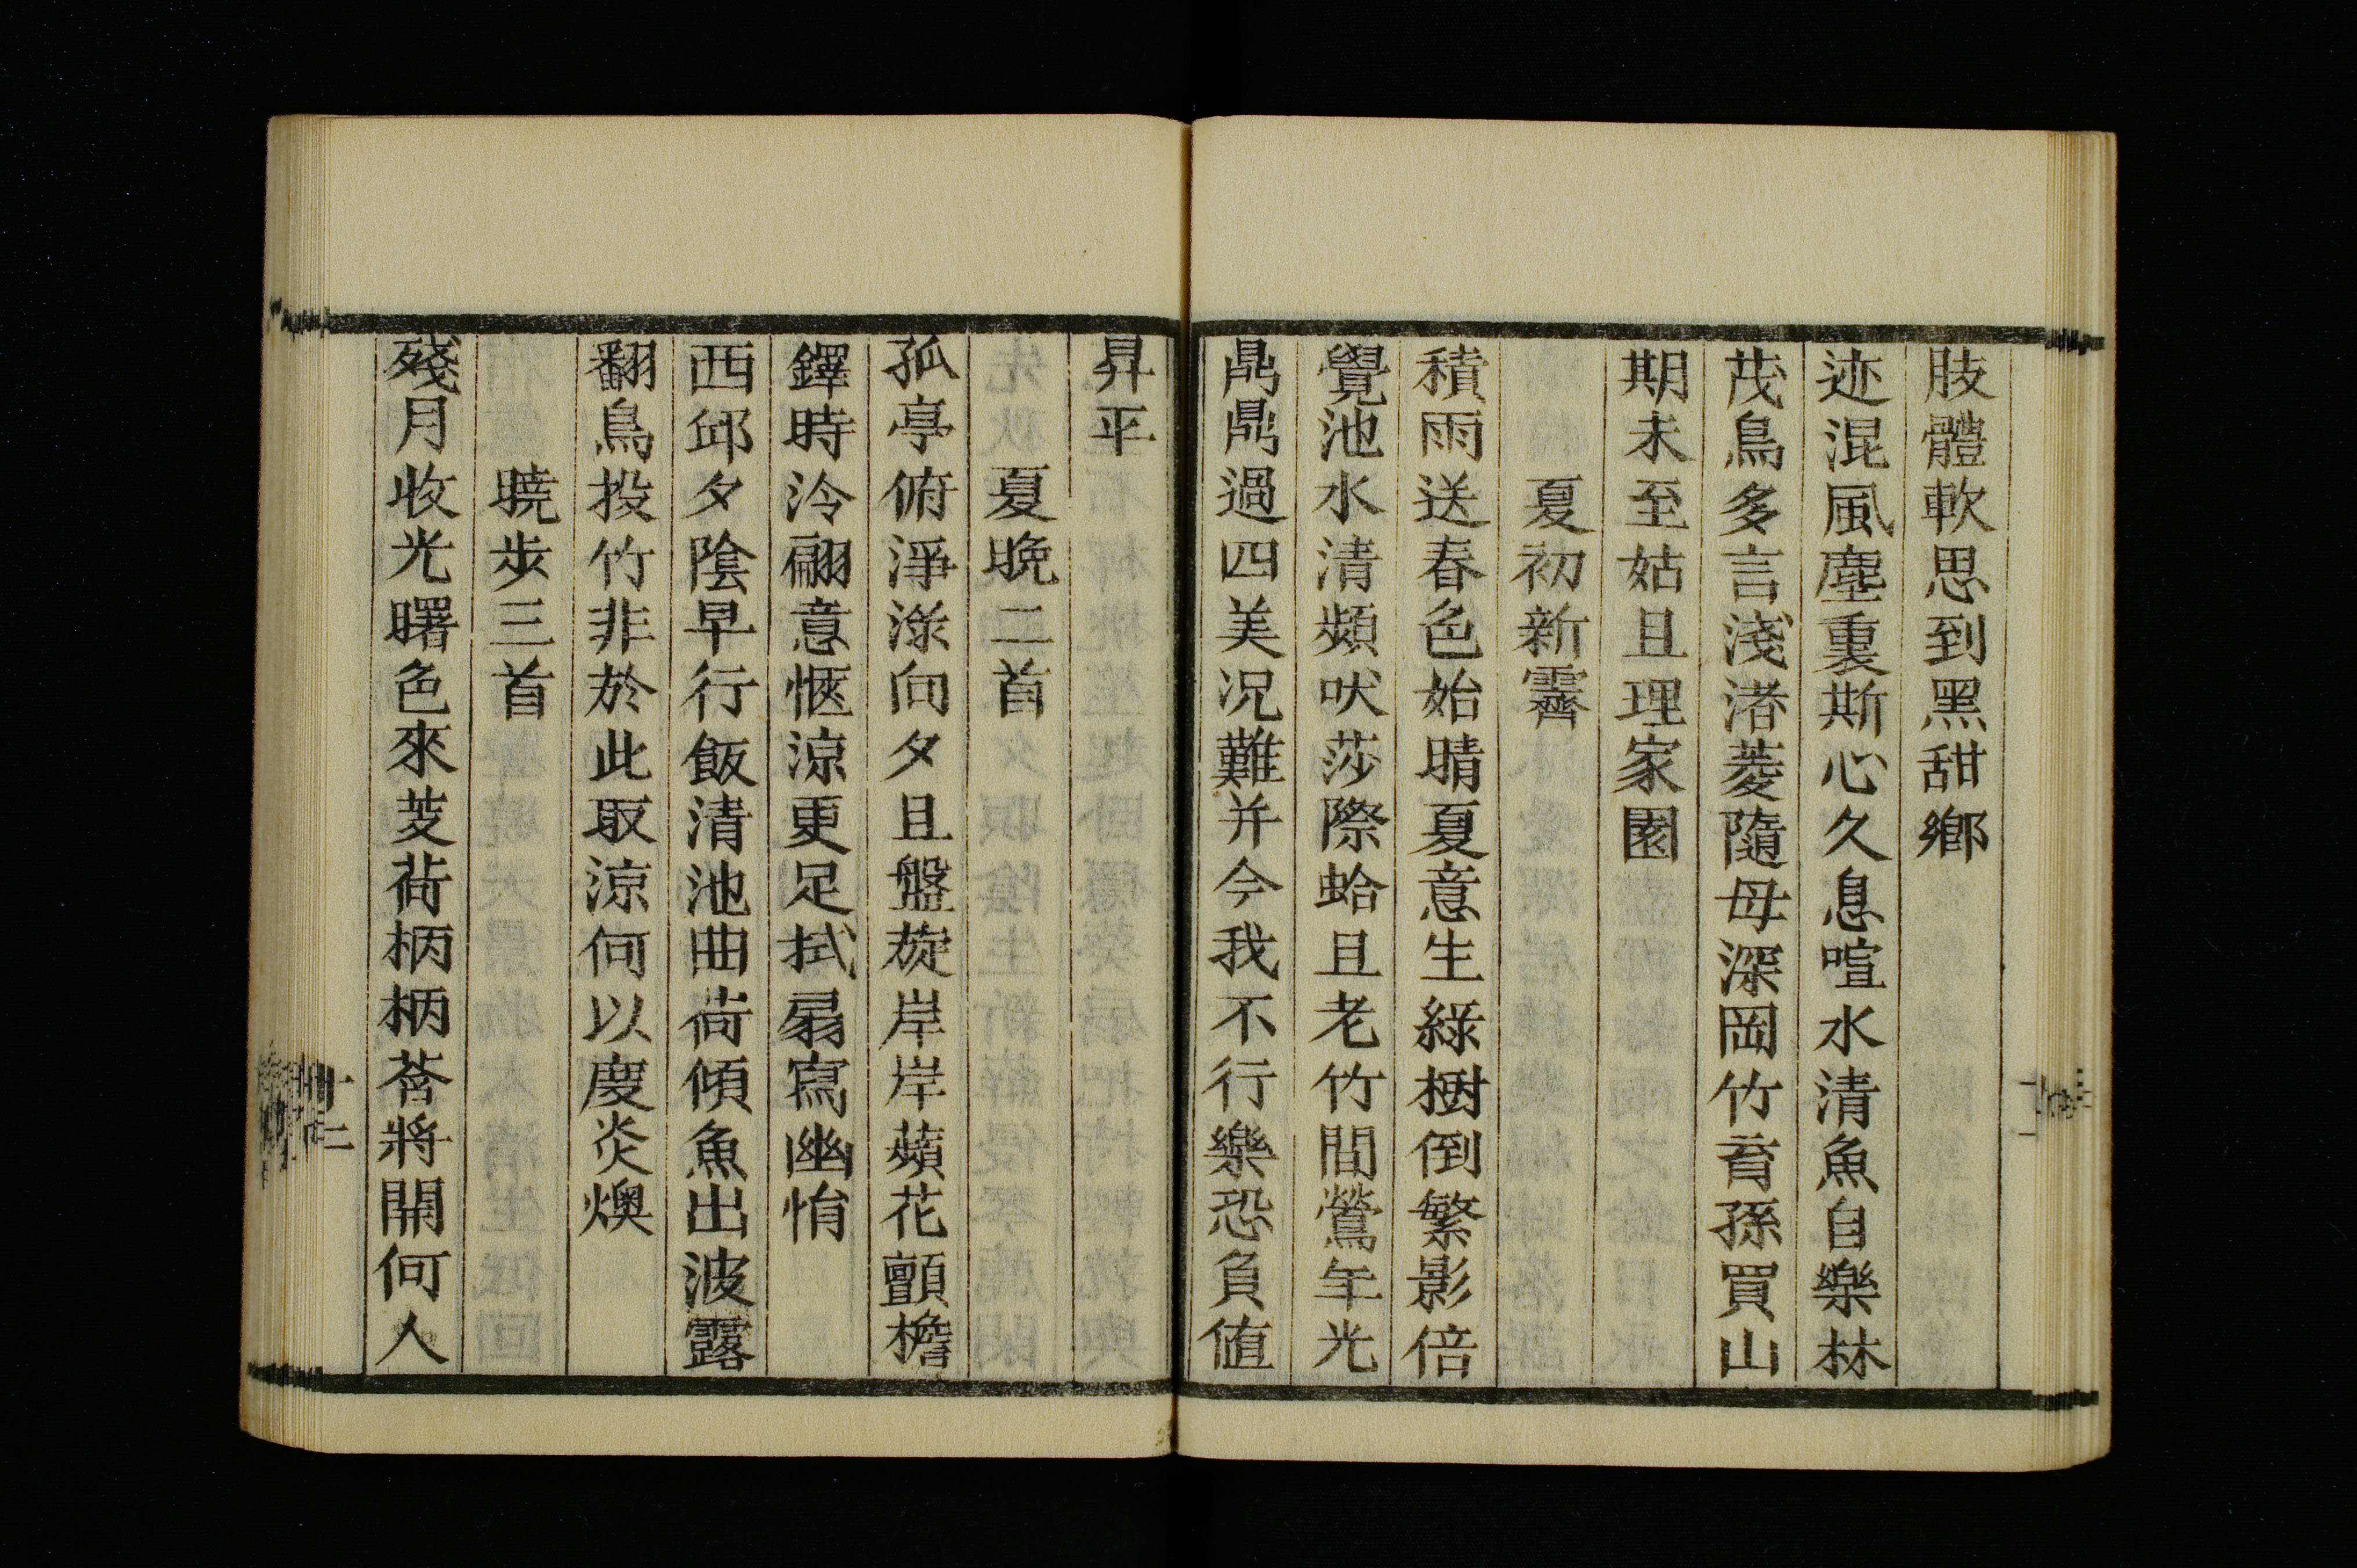 肢體軟思到黑甜鄉
迹混風塵裏斯心久息喧水清魚自樂林
茂鳥多言淺渚菱隨母深岡竹育孫買山
期未至姑且理家園
夏初新霽
積雨送春色始晴夏意生綠樹倒繁影倍
覺池水清頻吠莎際蛤且老竹間鶯年光
鼎鼎過四美况難并今我不行樂恐負值
昇平
夏晚二首
孤亭俯淨渌向夕且盤旋岸岸蘋花顫檐
鐸時泠翩意愜涼更足拭扇寫幽悁
西邱夕陰早行飯清池曲荷傾魚出波露
翻鳥投竹非於此取涼何以慶炎燠
曉步三首
殘月收光曙色來芰荷柄柄菩將開何人